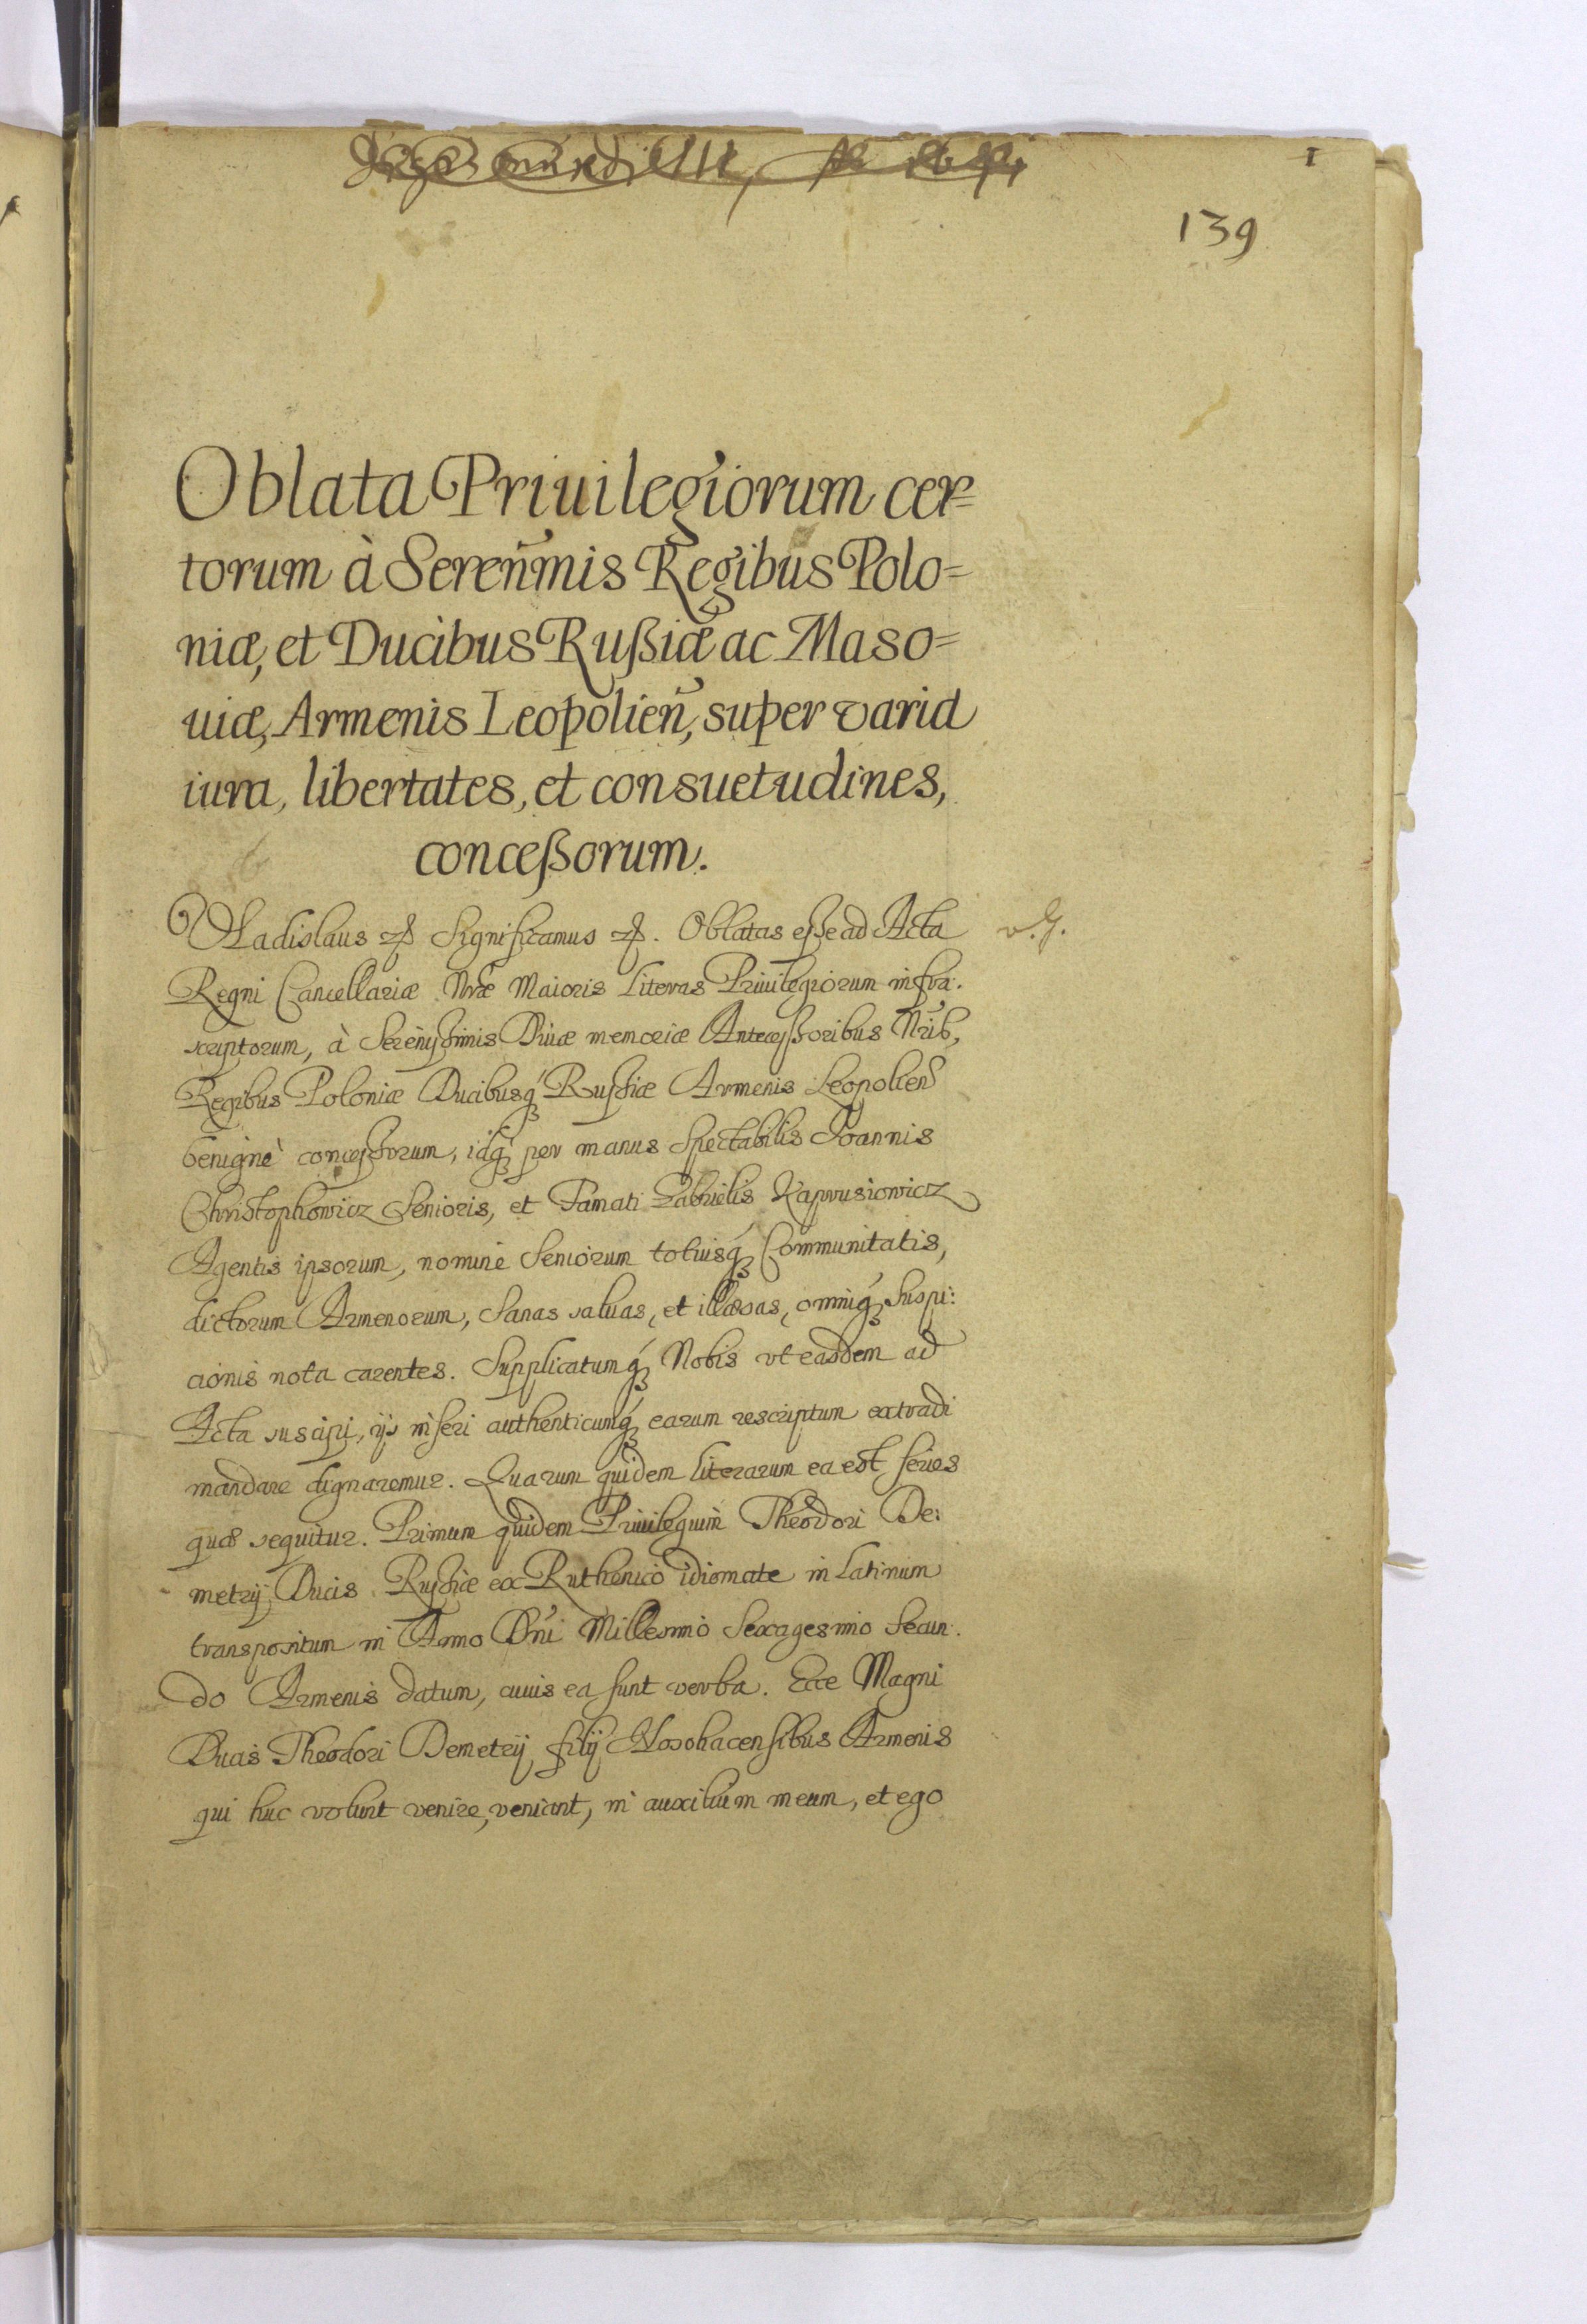 1
139
Oblata Priuilegiorum cer=
torum à Sereñmis Regibus Polo=
niæ, et Ducibus Rußiæ ac Maso=
uiæ, Armenis Leopolieñ, super varia
iura, libertates, et consuetudines,
conceßorum.
Vladislaus etc Significamus etc. Oblatas eße ad Acta
Regni Cancellariæ Nræ Maioris Literas Priuilegiorum infra:
scriptorum, à Serenißimis Diuæ memoriæ Anteceßoribus Nrib,
Regibus Poloniæ Ducibusq́ Rußiæ Armenis Leopolien
benignè conceßorum, idq́ per manus Spectabilis Joannis
Christophowicz Senioris, et Famati Gabrielis Kaprusiowicz
Agentis ipsorum, nomine Seniorum totiusq́ Communitatis,
dictorum Armenorum, sanas saluas, et illæsas, omniq́ suspi:
cionis nota carentes. Supplicatumq́ Nobis vt easdem ad
Acta suscipi, ijs inseri authenticumq́ earum rescriptum extradi
mandare dignaremur. Quarum quidem literarum ea est series
quæ sequitur. Primum quidem Priuilegium Theodori De:
metrij Ducis Rußiæ ex Ruthenico idiomate in Latinum
transpositum in Anno Dñi Millesimo Sexagesimo Secun:
do Armenis datum, cuius ea sunt verba. Ecce Magni
Ducis Theodori Demetrij filij Kosohacensibus Armenis
qui huc volunt venire, veniant, in auxilium meum, et ego